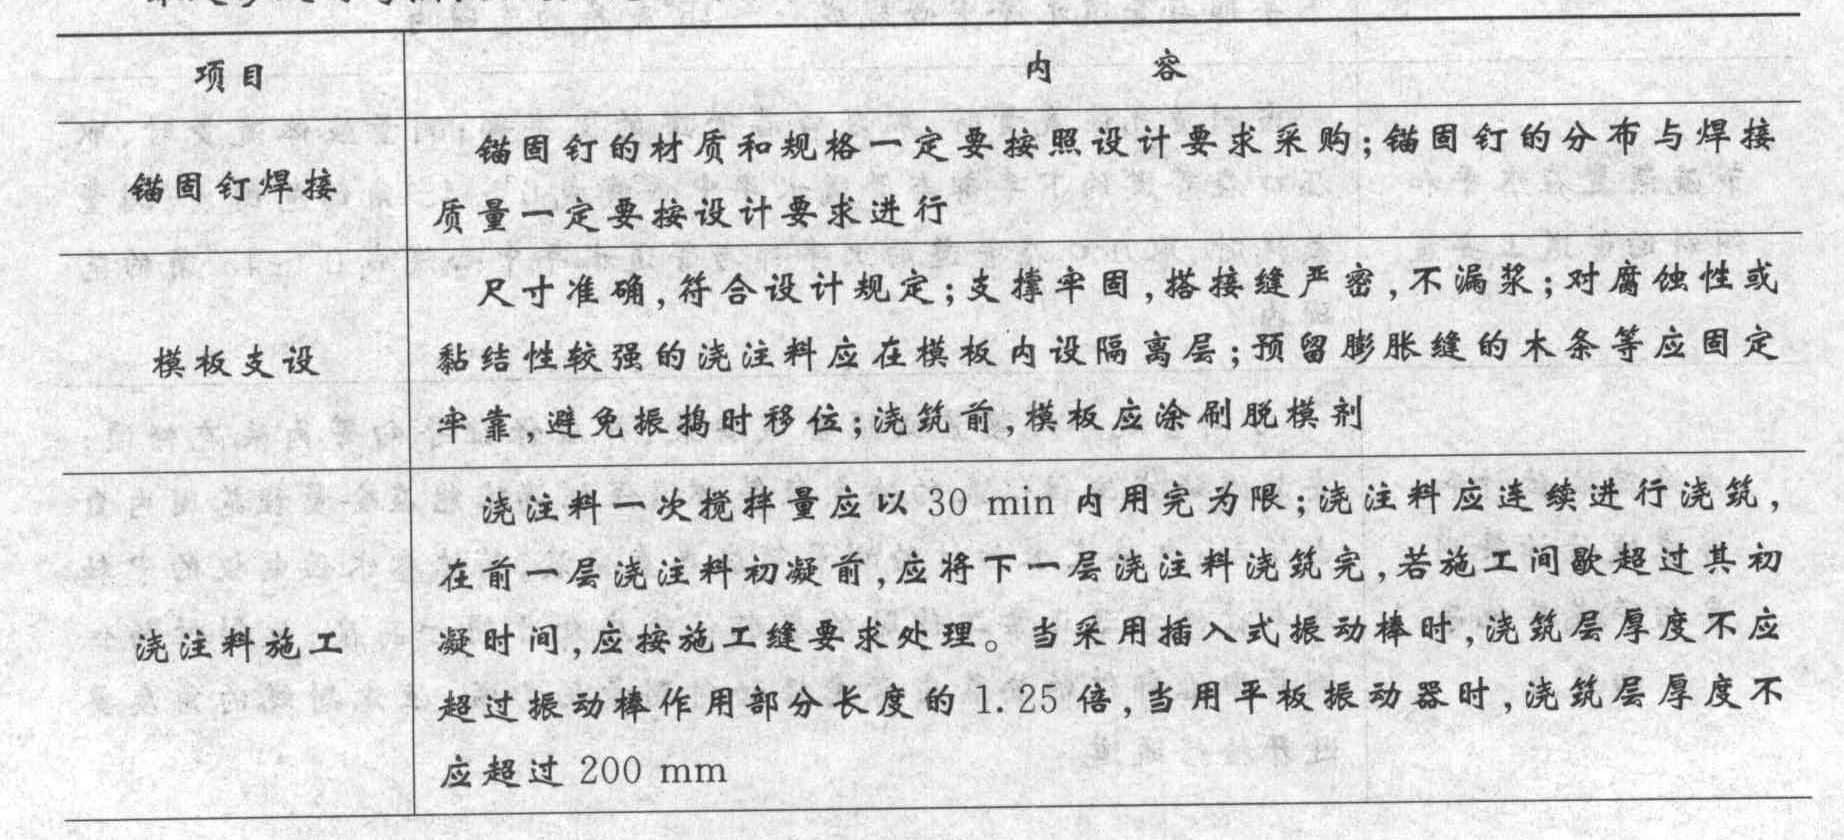 项目
内 容
锚固钉焊接
锚固钉的材质和规格一定要按照设计要求采购;锚固钉的分布与焊接
质量一定要按设计要求进行
模板支设
尺寸准确,符合设计规定;支撑牢固,搭接缝严密,不漏浆;对腐蚀性或
黏结性较强的浇注料应在模板内设隔离层;预留膨胀缝的木条等应固定
牢靠,避免振捣时移位;浇筑前,模板应涂刷脱模剂
浇注料施工
浇注料一次搅拌量应以 30 min 内用完为限;浇注料应连续进行浇筑,
在前一层浇注料初凝前,应将下一层浇注料浇筑完,若施工间歇超过其初
凝时间,应按施工缝要求处理。当采用插入式振动棒时,浇筑层厚度不应
超过振动棒作用部分长度的 1.25 倍,当用平板振动器时,浇筑层厚度不
应超过 200 mm